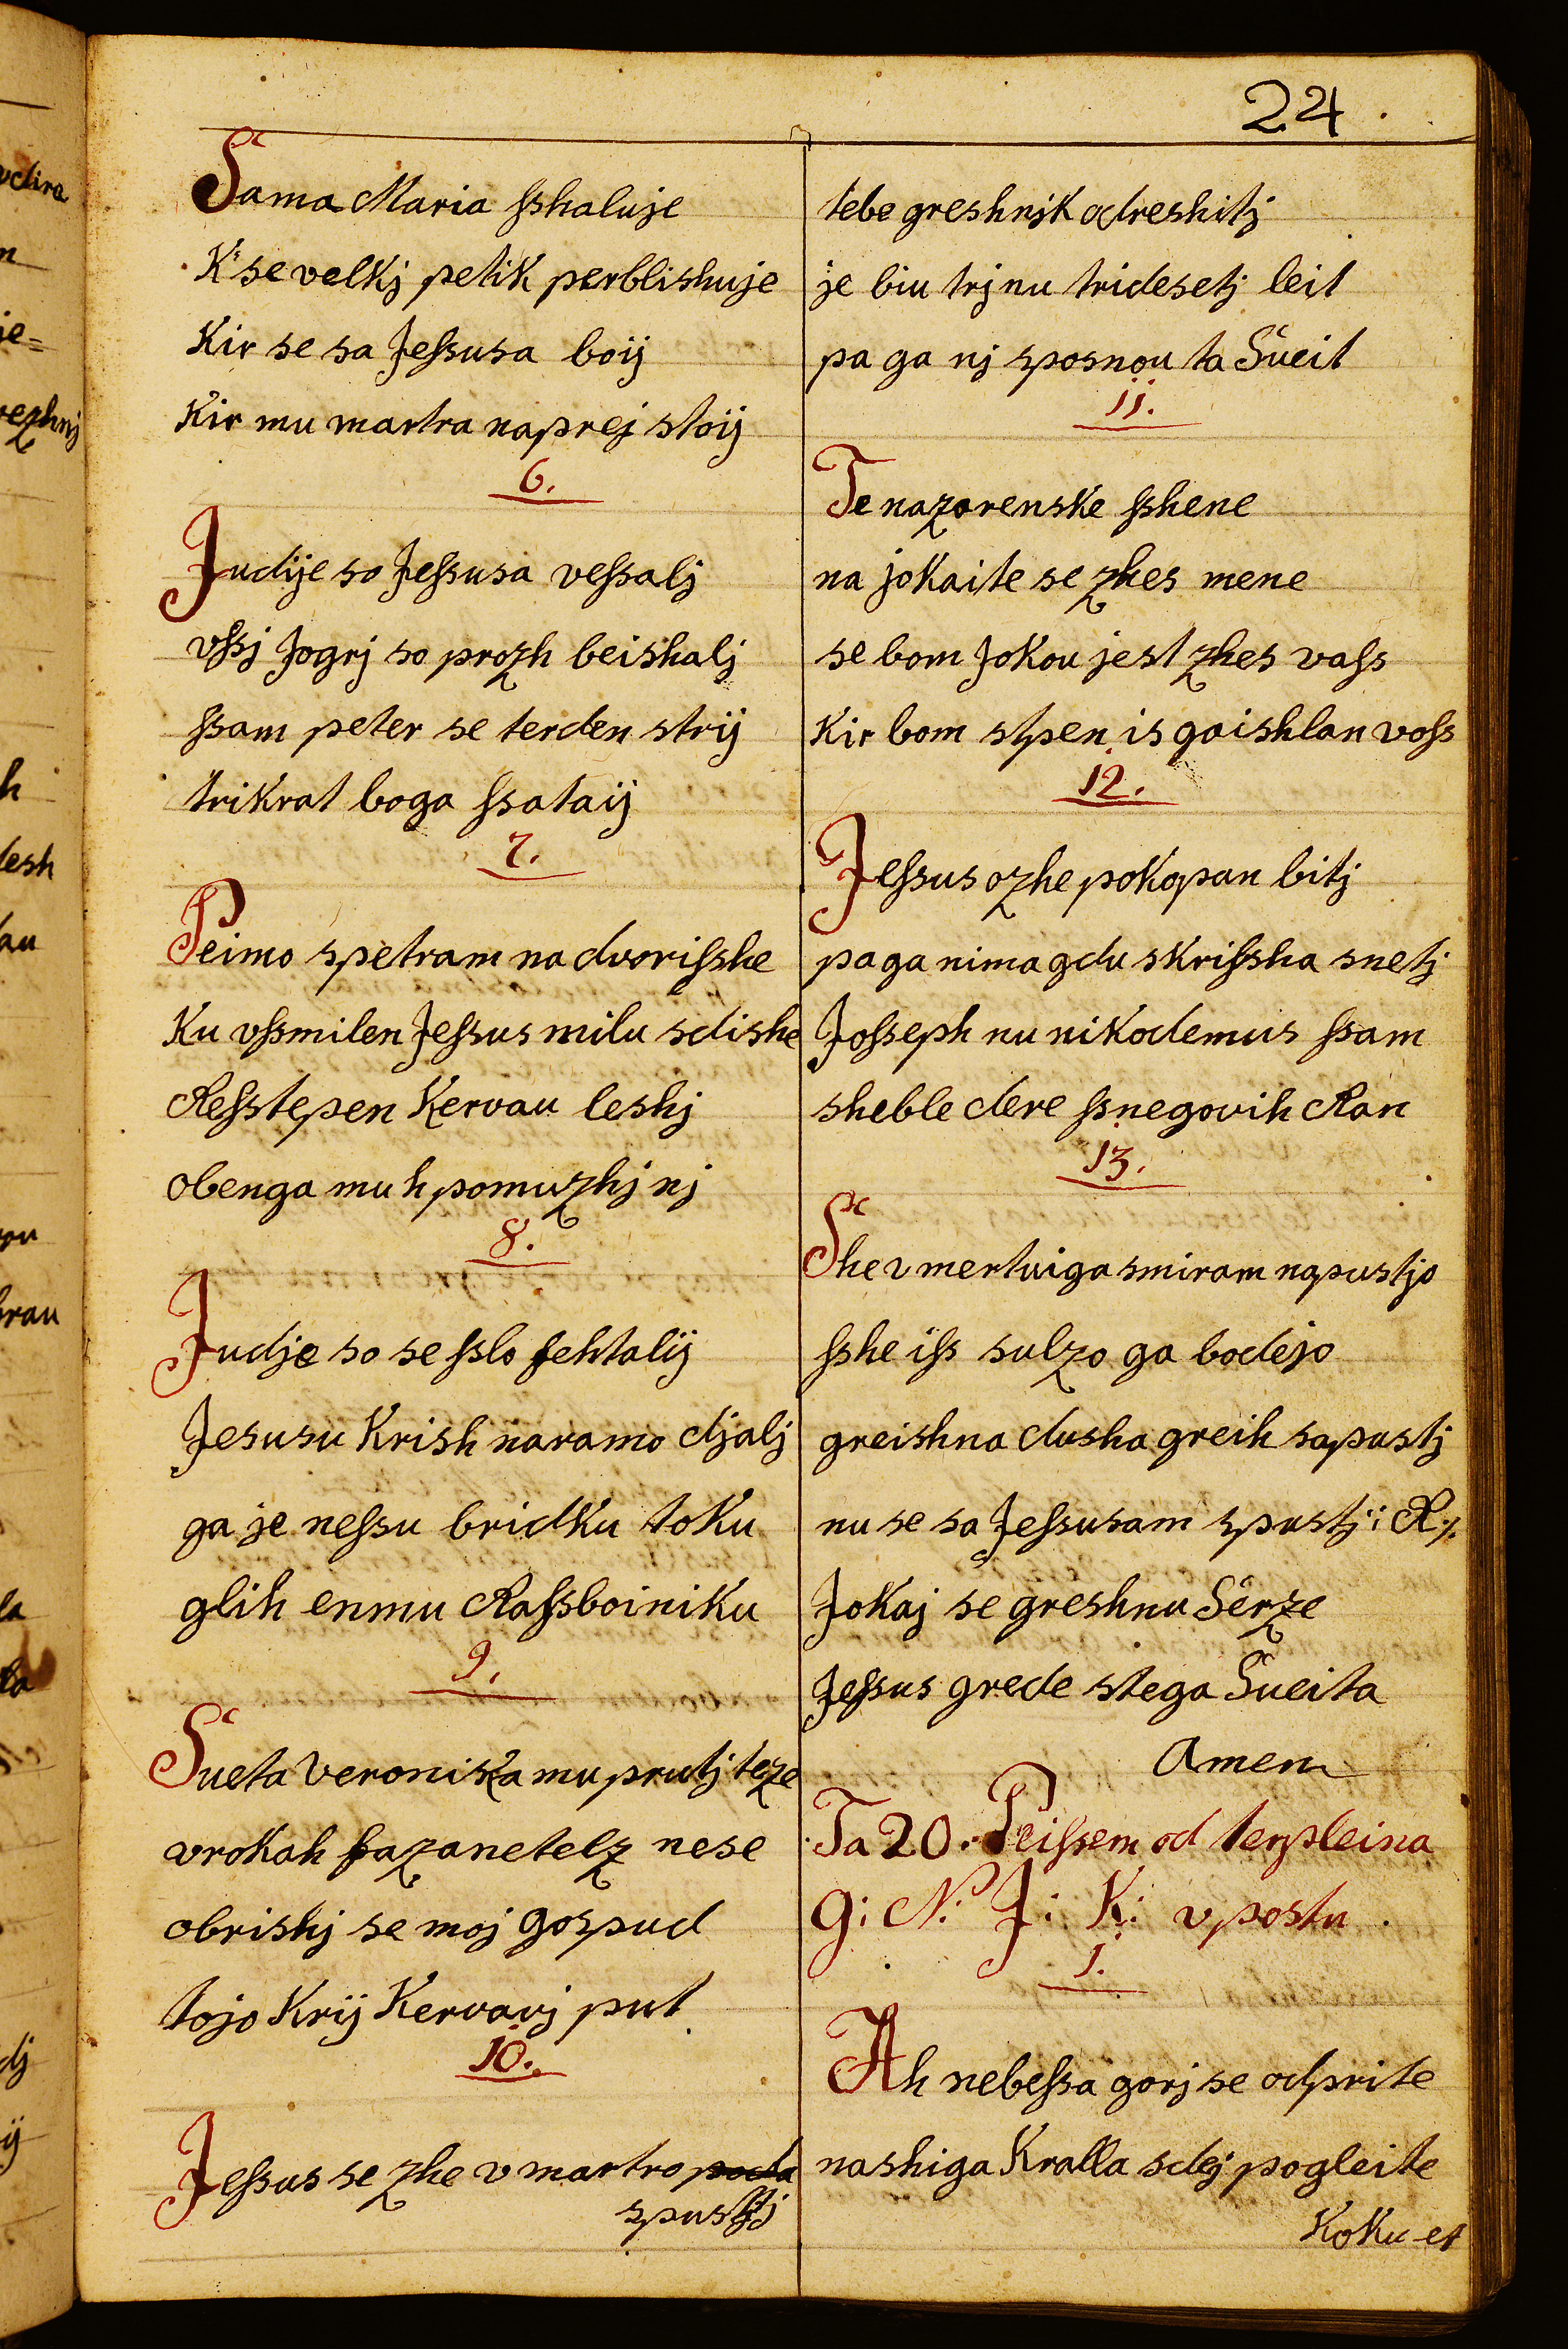 24
Sama Maria ſshaluje
K'se velkj petik perblishuje
Kir se sa Jeſsusa boij
Kir mu martra naprej stoij
6.
Judije so Jeſsusa veſsalj
vſsj Jogrj so prozh beishalj
ſsam peter se terden strij
trikrat boga ſsataij
7.
Peimo spetram na dvoriſshe
Ku vſsmilen Jeſsus milu sdishe
Reſstepen Kervau leshj
obenga mu h pomuzhj nj
8.
Judje so se ſslo fehtalij
Jesusu Krish naramo djalj
ga je neſsu bridku toku
glih enmu Raſsboiniku
9.
Sueta Veronika mu prutj teze
vrokah fazanetelz nese
obrishj se moj gospud
tojo Krij Kervavj put
10.
Jeſsus se zhe v martro
spustj
tebe greshnjk odreshitj
je biu trj nu tridesetj leit
pa ga nj sposnou ta Sueit
11.
Te nazarenske ſshene
na jokaite se zhes mene
se bom Jokou jest zhes vaſs
Kir bom stpen is gaishlan voſs
12.
Jeſsus ozhe pokopan bitj
pa ga nima gdu skriſsha snetj
Joſseph nu nikodemus ſsam
sheble dere ſsnegovih Ran
13.
She v mertuiga smiram napustjo
ſshe iſs sulzo ga bodejo
greishna dusha greih sapustj
nu se sa Jeſsusam spustj: R:/:
Jokaj se greshnu Serze
Jeſsus grede stega Sueita
Amen
Ta 20. Peiſsem od terpleina
G: N: J: K: v postu
1.
Ah nebeſsa gorj se odprite
nashiga Kralla sdej pogleite
Koku et